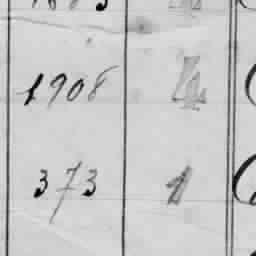 1908 4
373 1